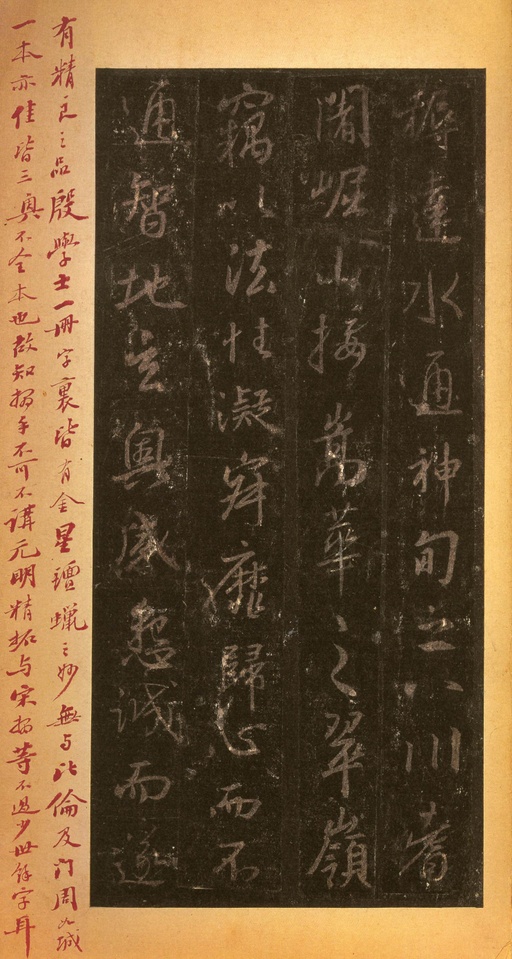 耨達水通神甸之八川耆
闍崛山接嵩華之翠嶺
竊以法性凝寂靡歸心而不
通智地玄奧感懇誠而遂
有精良之品殷學士一冊字裏皆有金星蠟之妙無与比倫及门周城
一本亦佳皆三奧不全本也故知搨手不可不講元明精拓与宋搨等不過少世餘字耳